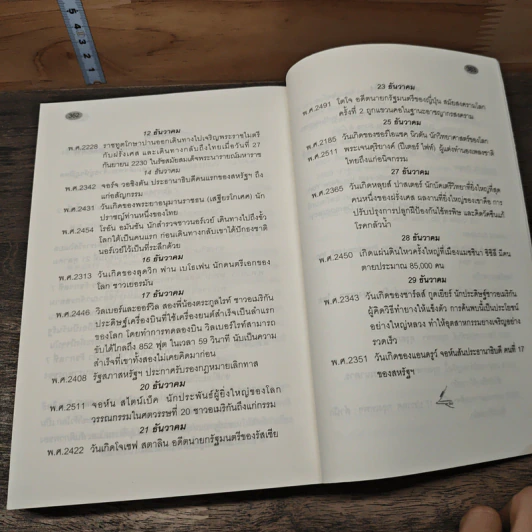 362
12 ธันวาคม
พ.ศ.2228 ราชทูตโกษาปานออกเดินทางไปเจริญพระราชไมตรี
กับฝรั่งเศส และเดินทางกลับถึงไทยเมื่อวันที่ 27
กันยายน 2230 ในรัชสมัยสมเด็จพระนารายณ์มหาราช
14 ธันวาคม
พ.ศ.2342 จอร์จ วอชิงตัน ประธานาธิบดีคนแรกของสหรัฐฯ ถึง
แก่อสัญกรรม
พ.ศ.2431 วันเกิดของพระยาอนุมานราชธน (เสฐียรโกเศศ) นัก
ปราชญ์ท่านหนึ่งของไทย
พ.ศ.2454 โรอัน อมันซัน นักสำรวจชาวนอร์เวย์ เดินทางไปถึงขั้ว
โลกใต้เป็นคนแรก ก่อนเดินทางกลับเขาได้ปักธงชาติ
นอร์เวย์ไว้เป็นที่ระลึกด้วย
16 ธันวาคม
พ.ศ.2313 วันเกิดของลุดวิก ฟาน เบโธเฟน นักดนตรีเอกของ
โลก ชาวเยอรมัน
17 ธันวาคม
พ.ศ.2446 วิลเบอร์และออร์วิล สองพี่น้องตระกูลไรท์ ชาวอเมริกัน
ประดิษฐ์เครื่องบินที่ใช้เครื่องยนต์สำเร็จเป็นลำแรก
ของโลก โดยทำการทดลองบิน วิลเบอร์ไรท์สามารถ
ขับได้ไกลถึง 852 ฟุต ในเวลา 59 วินาที นับเป็นความ
สำเร็จที่เขาทั้งสองไม่เคยคิดมาก่อน
พ.ศ.2408 รัฐสภาสหรัฐฯ ประกาศรับรองกฎหมายเลิกทาส
20 ธันวาคม
พ.ศ.2511 จอห์น สไตน์เบ็ค นักประพันธ์ผู้ยิ่งใหญ่ของโลก
วรรณกรรมในศตวรรษที่ 20 ชาวอเมริกันถึงแก่กรรม
21 ธันวาคม
พ.ศ.2422 วันเกิดโจเซฟ สตาลิน อดีตนายกรัฐมนตรีของรัสเซีย
23 ธันวาคม
พ.ศ.2491 โตโจ อดีตนายกรัฐมนตรีของญี่ปุ่น สมัยสงครามโลก
ครั้งที่ 2 ถูกแขวนคอในฐานะอาชญากรสงคราม
25 ธันวาคม
พ.ศ.2185 วันเกิดของเซอร์ไอแซค นิวตัน นักวิทยาศาสตร์ของโลก
พ.ศ.2511 พระเจนดุริยางค์ (ปีเตอร์ ไฟท์) ผู้แต่งทำนองเพลงชาติ
ไทยถึงแก่อนิจกรรม
27 ธันวาคม
พ.ศ.2365 วันเกิดหลุยส์ ปาสเตอร์ นักบัคเตรีวิทยาที่ยิ่งใหญ่ที่สุด
คนหนึ่งของฝรั่งเศส ผลงานที่ยิ่งใหญ่ของเขาคือ การ
ปรับปรุงการปลูกฝีป้องกันไข้ทรพิษ และคิดวัคซีนแก้
โรคกลัวน้ำ
28 ธันวาคม
พ.ศ.2450 เกิดแผ่นดินไหวครั้งใหญ่ที่เมืองแมชซินา ซิซิลี มีคน
ตายประมาณ 85,000 คน
29 ธันวาคม
พ.ศ.2343 วันเกิดของชาร์ลส์ กูดเยียร์ นักประดิษฐ์ชาวอเมริกัน
ผู้คิดวิธีทำยางให้แข็งตัว การค้นพบนี้เป็นประโยชน์
อย่างใหญ่หลวง ทำให้อุตสาหกรรมยางเจริญอย่าง
รวดเร็ว
พ.ศ.2351 วันเกิดของแอนดรูว์ จอห์นสันประธานาธิบดี คนที่ 17
ของสหรัฐฯ